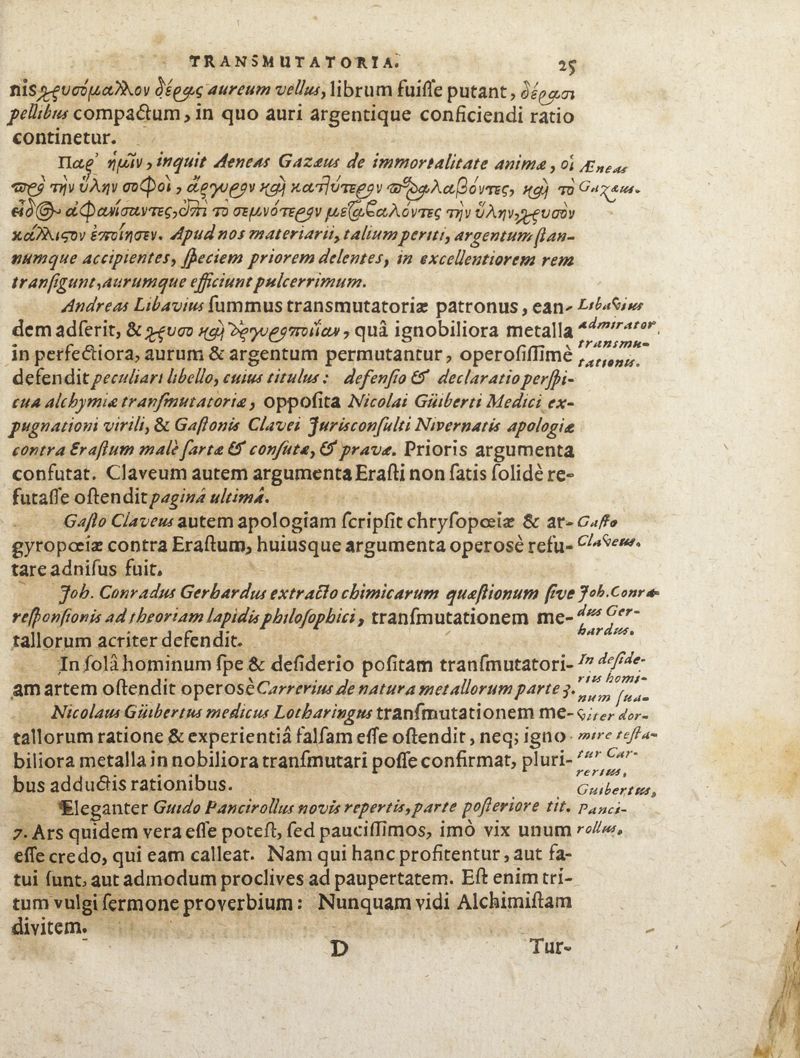 TRANSMUTATORIA. 25
nis χρυσόμαλλον δέρας aureum vellus, librum fuiſſe putant, δέρασι
pellibus compactum, in quo auri argentique conficiendi ratio
continetur.
Παρ' ἡμῖν, inquit Aeneas Gazæus de immortalitate animæ, οἱ
Æneas
περὶ τὴν ὕλην σοφοὶ, ἄργυρον καὶ κασσίτερον παραλαβόντες, καὶ τὸ
Gazæus.
εἶδος ἀφανίσαντες, ἐπὶ τὸ σεμνότερον μεταβαλόντες τὴν ὕλην, χρυσὸν
κάλλιστον ἐποίησεν. Apud nos materiarii, talium periti, argentum ſtan-
numque accipientes, ſpeciem priorem delentes, in excellentiorem rem
tranſigunt, aurumque efficiunt pulcerrimum.
Andreas Libavius ſummus transmutatoriæ patronus, ean-
Libavius
dem adſerit, & χρυσο καὶ ἀργυροποιίαν, quâ ignobiliora metalla
admirator
in perfectiora, aurum & argentum permutantur, operoſiſſimè
transmu-
tationis.
defendit peculiari libello, cuius titulus: defenſio & declaratio perſpi-
cua alchymiæ tranſmutatoriæ, oppoſita Nicolai Guiberti Medici ex-
pugnationi virili, & Gaſtonis Clavei Jurisconſulti Nivernatis apologiæ
contra Eraſtum malè ſartæ & confutæ, & pravæ. Prioris argumenta
confutat. Claveum autem argumenta Eraſti non ſatis ſolidè re-
futaſſe oſtendit paginâ ultimâ.
Gaſto Claveus autem apologiam ſcripſit chryſopœiæ & ar-
Gaſto
gyropœiæ contra Eraſtum, huiusque argumenta operosè refu-
Claveus.
tare adniſus fuit.
Joh. Conradus Gerhardus extracto chimicarum quæſtionum ſive
Joh. Conra-
reſponſionis ad theoriam lapidis philoſophici, tranſmutationem me-
dus Ger-
tallorum acriter defendit.
hardus.
In ſolâ hominum ſpe & deſiderio poſitam tranſmutatori-
In deſide-
am artem oſtendit operosè Carrerius de natura metallorum parte 3.
riis homi-
num ſua-
Nicolaus Guibertus medicus Lotharingus tranſmutationem me-
viter dor-
tallorum ratione & experientiâ falſam eſſe oſtendit, neq; igno-
mire teſta-
biliora metalla in nobiliora tranſmutari poſſe confirmat, pluri-
tur Car-
rerius,
bus adductis rationibus.
Guibertus,
Eleganter Guido Pancirollus novis repertis, parte poſteriore tit.
Panci-
7. Ars quidem vera eſſe poteſt, ſed pauciſſimos, imò vix unum
rollus,
eſſe credo, qui eam calleat. Nam qui hanc profitentur, aut fa-
tui ſunt, aut admodum proclives ad paupertatem. Eſt enim tri-
tum vulgi ſermone proverbium: Nunquam vidi Alchimiſtam
divitem.
D Tur-